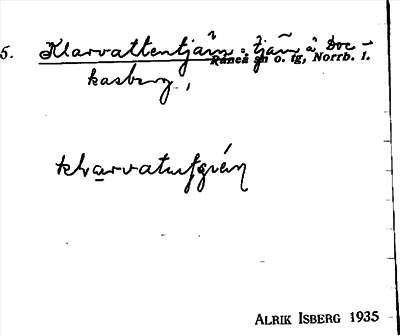 5. Klarvattentjärn: tjärn å Doc-
Råneå sn o. tg, Norrb. l.
kasberg,
ALRIK ISBERG 1935